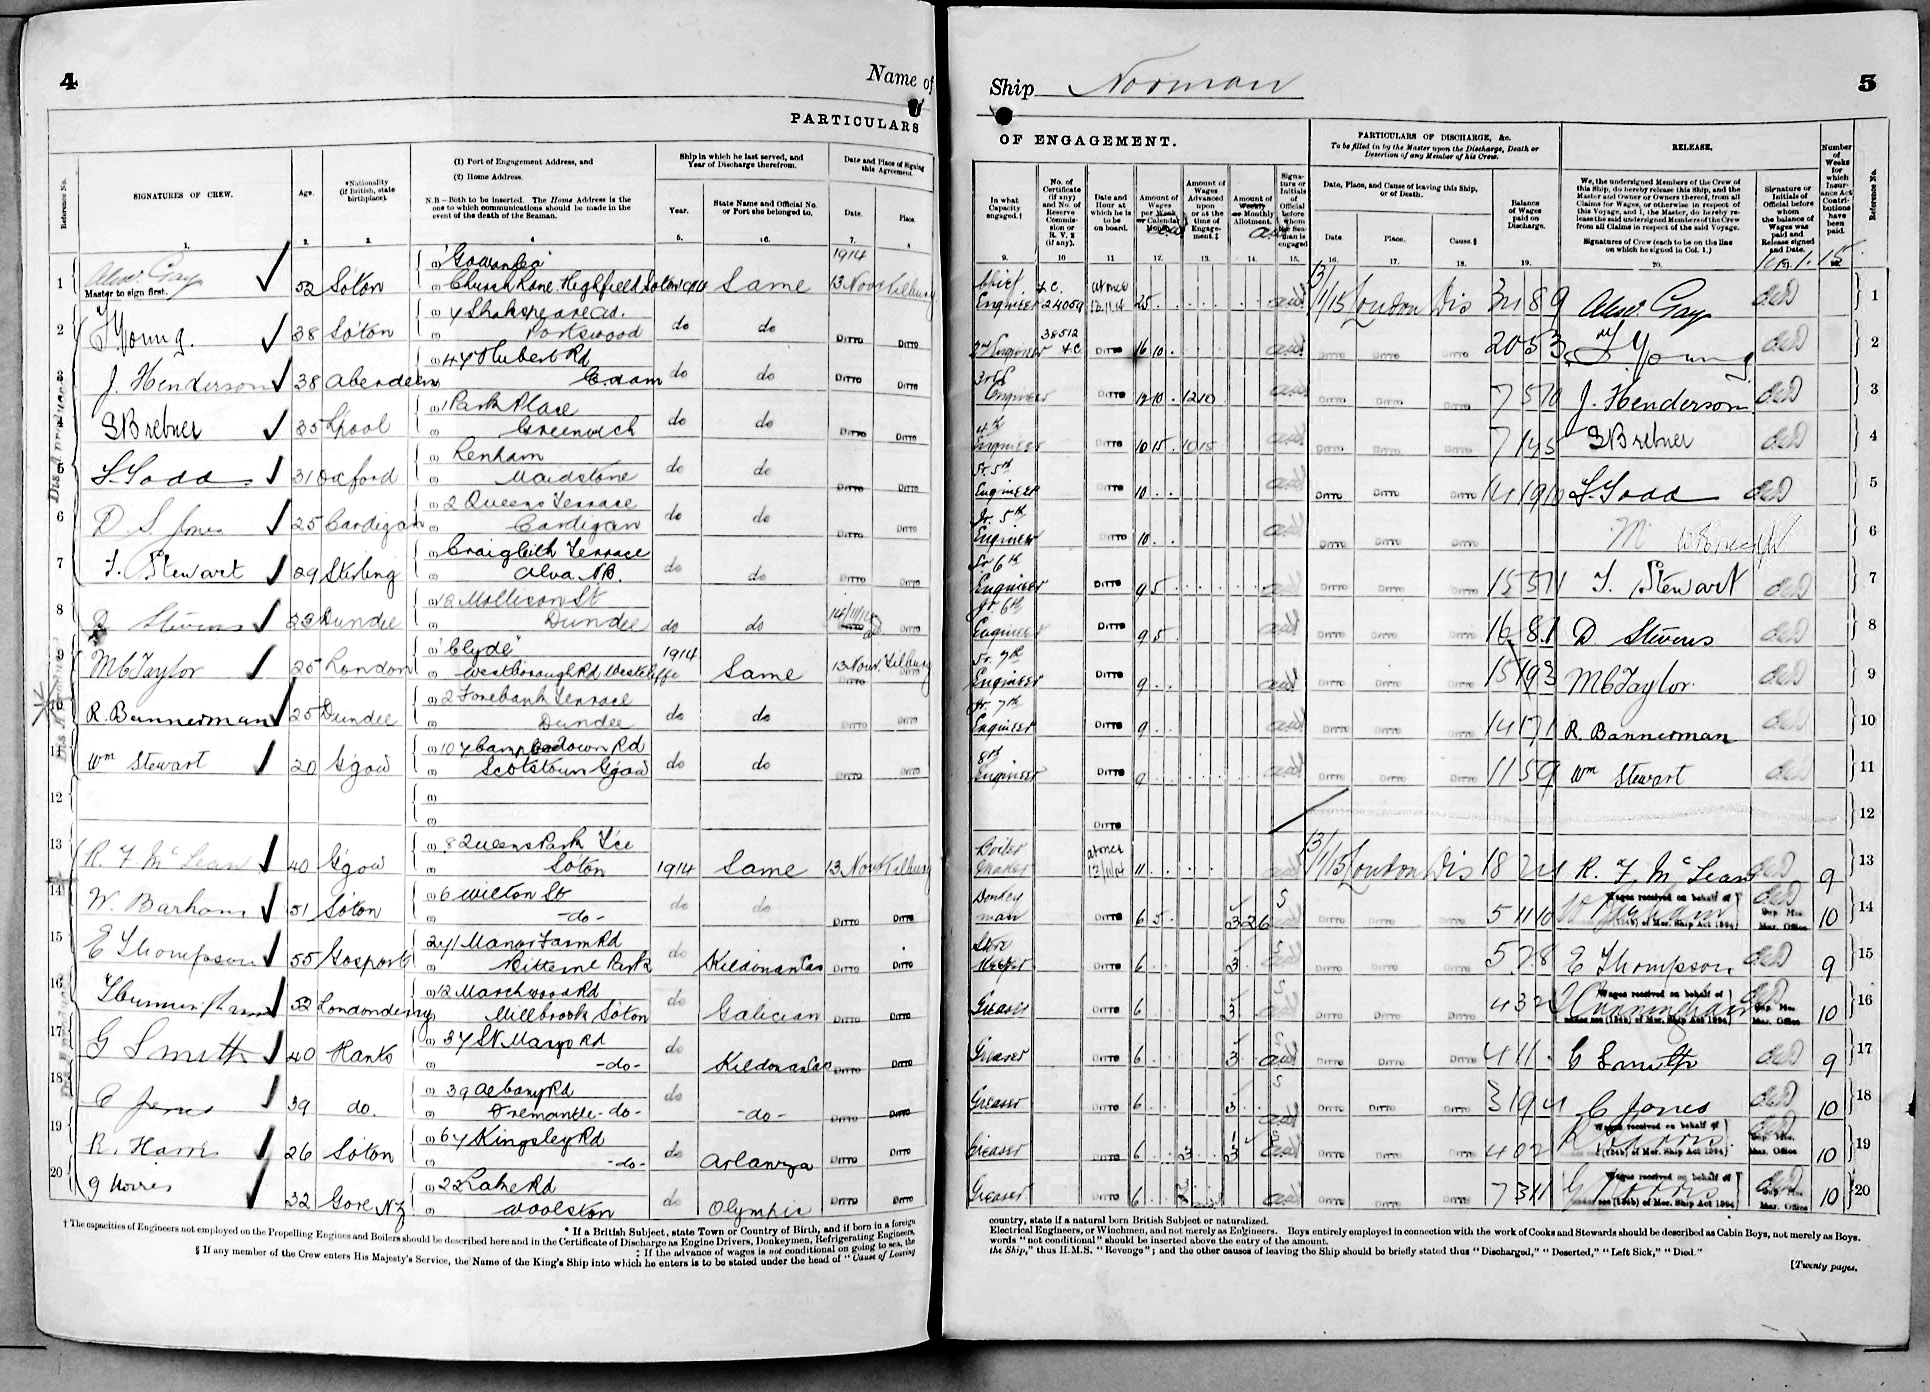 4
Name of
PARTICULARS
Reference No.
SIGNATURES OF CREW.
Age.
*Nationality (if British, state birthplace).
(1) Port of Engagement Address, and
(2) Home Address.
N.B — Both to be inserted. The Home Address is the one to which communications should be made in the event of the death of the Seaman.
Ship in which he last served, and Year of Discharge therefrom.
Year.
State Name and Official No. or Port she belonged to.
Date and Place of Signing this Agreement.
Date.
Place
1. 2. 3. 4 5. *6. 7. 8
1914
1 Alexr Gay 52 Soton (1) "Gowanlea"
Master to sign first. (2) Church Lane Highfield Soton 1914 Same 13 Novr Tilbury
2 T Young. 38 Soton (1) 4 Shakespeare Rd.
(2) Portswood do do DITTO DITTO
3 J. Henderson 38 Aberdeen (1) 44 Hubert Rd
(2) E. Ham do do DITTO DITTO
4 Brebner 35 L'pool (1) 1 Park Place
(2) Greenwich do do DITTO DITTO
5 L. Todd 31 Oxford (1) Lenham
(2) Maidstone do do DITTO DITTO
6 D S Jones 25 Cardigan (1) 2 Queens Terrace
(2) Cardigan do do DITTO DITTO
7 T. Stewart 29 Stirling (1) Craigleith Terrace
(2) Alva N.B. do do DITTO DITTO
8 D Stevens 23 Dundee (1) 18 Mollison St
(2) Dundee do do 14/11/14 DITTO
9 M C Taylor 25 London (1) "Clyde" 1914
(2) Westborough Rd Westcliffe Same 13 Novr. Tilbury
10 R. Bannerman 25 Dundee (1) 2 Forebank Terrace
(2) Dundee do do DITTO DITTO
11 Wm Stewart 20 G'gow (1) 107 Camperdown Rd
(2) Scotstoun G'gow do do DITTO DITTO
12 (1)
(2)
13 R. F. McLean 40 G'gow (1) 8 Queens Park T'ce
(2) Soton 1914 Same 13 Novr Tilbury
14 W. Barham 51 Soton (1) 6 Wilton St
(2) -do- do do DITTO DITTO
15 E Thompson 55 Gosport (1) 241 Manor Farm Rd
(2) Bitterne Park do Kildonan Cas DITTO DITTO
16 T Cunningham 32 Londonderry (1) 12 Marchwood Rd
(2) Millbrook Soton do Galician DITTO DITTO
17 G Smith 40 Hants (1) 37 St Marys Rd
(2) -do- do Kildonan Cas DITTO DITTO
18 C Jones 39 do. (1) 39 Albany Rd
(2) Fremantle -do- do -do- DITTO DITTO
19 R. Harris 26 Soton (1) 67 Kingsley Rd
(2) -do- do Arlanza DITTO DITTO
20 G Norris 32 Gore N.Z (1) 22 Lake Rd
(2) Woolston do Olympic DITTO DITTO
† The capacities of Engineers not employed on the Propelling Engines and Boilers should be described here and in the Certificate of Discharge as Engine Drivers, Donkeymen, Refrigerating Engineers,
* If a British Subject, state Town or Country of Birth, and if born in a foreign
‡ If the advance of wages is not conditional on going to sea, the
§ If any member of the Crew enters His Majesty's Service, the Name of the King's Ship into which he enters is to be stated under the head of "Cause of Leaving
Ship Norman
5
OF ENGAGEMENT.
In what Capacity engaged.†
No. of Certificate (if any) and No. of Reserve Commission or R. V. 2 (if any).
Date and Hour at which he is to be on board.
Amount of Wages per Week or Calendar Month.
Amount of Wages Advanced upon or at the time of Engagement.‡
Amount of Weekly or Monthly Allotment.
Signature or Initials of Official before whom the Seaman is engaged
PARTICULARS OF DISCHARGE, &c.
To be filled in by the Master upon the Discharge, Death or Desertion of any Member of his Crew.
Date, Place, and Cause of leaving this Ship, or of Death.
Date Place. Cause.§
Balance of Wages paid on Discharge.
RELEASE.
We, the undersigned Members of the Crew of this Ship, do hereby release this Ship, and the Master and Owner or Owners thereof, from all Claims for Wages, or otherwise in respect of this Voyage; and I, the Master, do hereby release the said undersigned Members of the Crew from all Claims in respect of the said Voyage.
Signatures of Crew (each to be on the line on which he signed in Col. 1.)
Signature or Initials of Official before whom the balance of Wages was paid and Release signed and Date.
Number of Weeks for which Insurance Act Contributions have been paid.
Reference No.
9. 10 11 12. 13. 14. 15. 16. 17. 18. 19. 20.
Chief Engineer 24009 at once 13.11.14 25 13/1/15 London Dis 34 8 9 Alexr Gay 1
2nd Engineer 38512 DITTO 16 10 DITTO DITTO DITTO 20 5 3 T Young 2
3rd Engineer DITTO 12 10 12 10 DITTO DITTO DITTO 7 5 10 J. Henderson 3
4th Engineer DITTO 10 15 10 15 DITTO DITTO DITTO 7 14 5 Brebner 4
Sr. 5th Engineer DITTO 10 DITTO DITTO DITTO 14 19 10 L. Todd 5
Jr. 5th Engineer DITTO 10 DITTO DITTO DITTO 6
Sr 6th Engineer DITTO 9 5 DITTO DITTO DITTO 15 5 11 T. Stewart 7
Jr. 6th Engineer DITTO 9 5 DITTO DITTO DITTO 16 8 1 D Stevens 8
Sr. 7th Engineer DITTO 9 DITTO DITTO DITTO 15 19 3 M C Taylor 9
Jr. 7th Engineer DITTO 9 DITTO DITTO DITTO 14 17 1 R. Bannerman 10
8th Engineer DITTO 9 DITTO DITTO DITTO 11 5 9 Wm Stewart 11
DITTO 12
Boiler Maker at once 13/11/14 11 13/1/15 London Dis 18 2 4 R. F. McLean 9 13
Donkey man DITTO 6 5 3 2 6 DITTO DITTO DITTO 5 11 10 Wages received on behalf of 10 14
Store Keeper DITTO 6 3 DITTO DITTO DITTO 5 7 8 E Thompson 9 15
Greaser DITTO 6 3 DITTO DITTO DITTO 4 3 2 Wages received on behalf of T Cunningham 10 16
Greaser DITTO 6 3 DITTO DITTO DITTO 4 11 G Smith 9 17
Greaser DITTO 6 3 DITTO DITTO DITTO 3 19 4 C Jones 10 18
Greaser DITTO 6 3 3 DITTO DITTO DITTO 4 0 2 Wages received on behalf of 10 19
Greaser DITTO 6 DITTO DITTO DITTO 7 3 11 Wages received on behalf of 10 20
country, state if a natural born British Subject or naturalized.
Electrical Engineers, or Winchmen, and not merely as Engineers. Boys entirely employed in connection with the work of Cooks and Stewards should be described as Cabin Boys, not merely as Boys.
words "not conditional" should be inserted above the entry of the amount.
the Ship," thus H.M.S. "Revenge"; and the other causes of leaving the Ship should be briefly stated thus "Discharged," "Deserted," "Left Sick," "Died."
[Twenty pages.